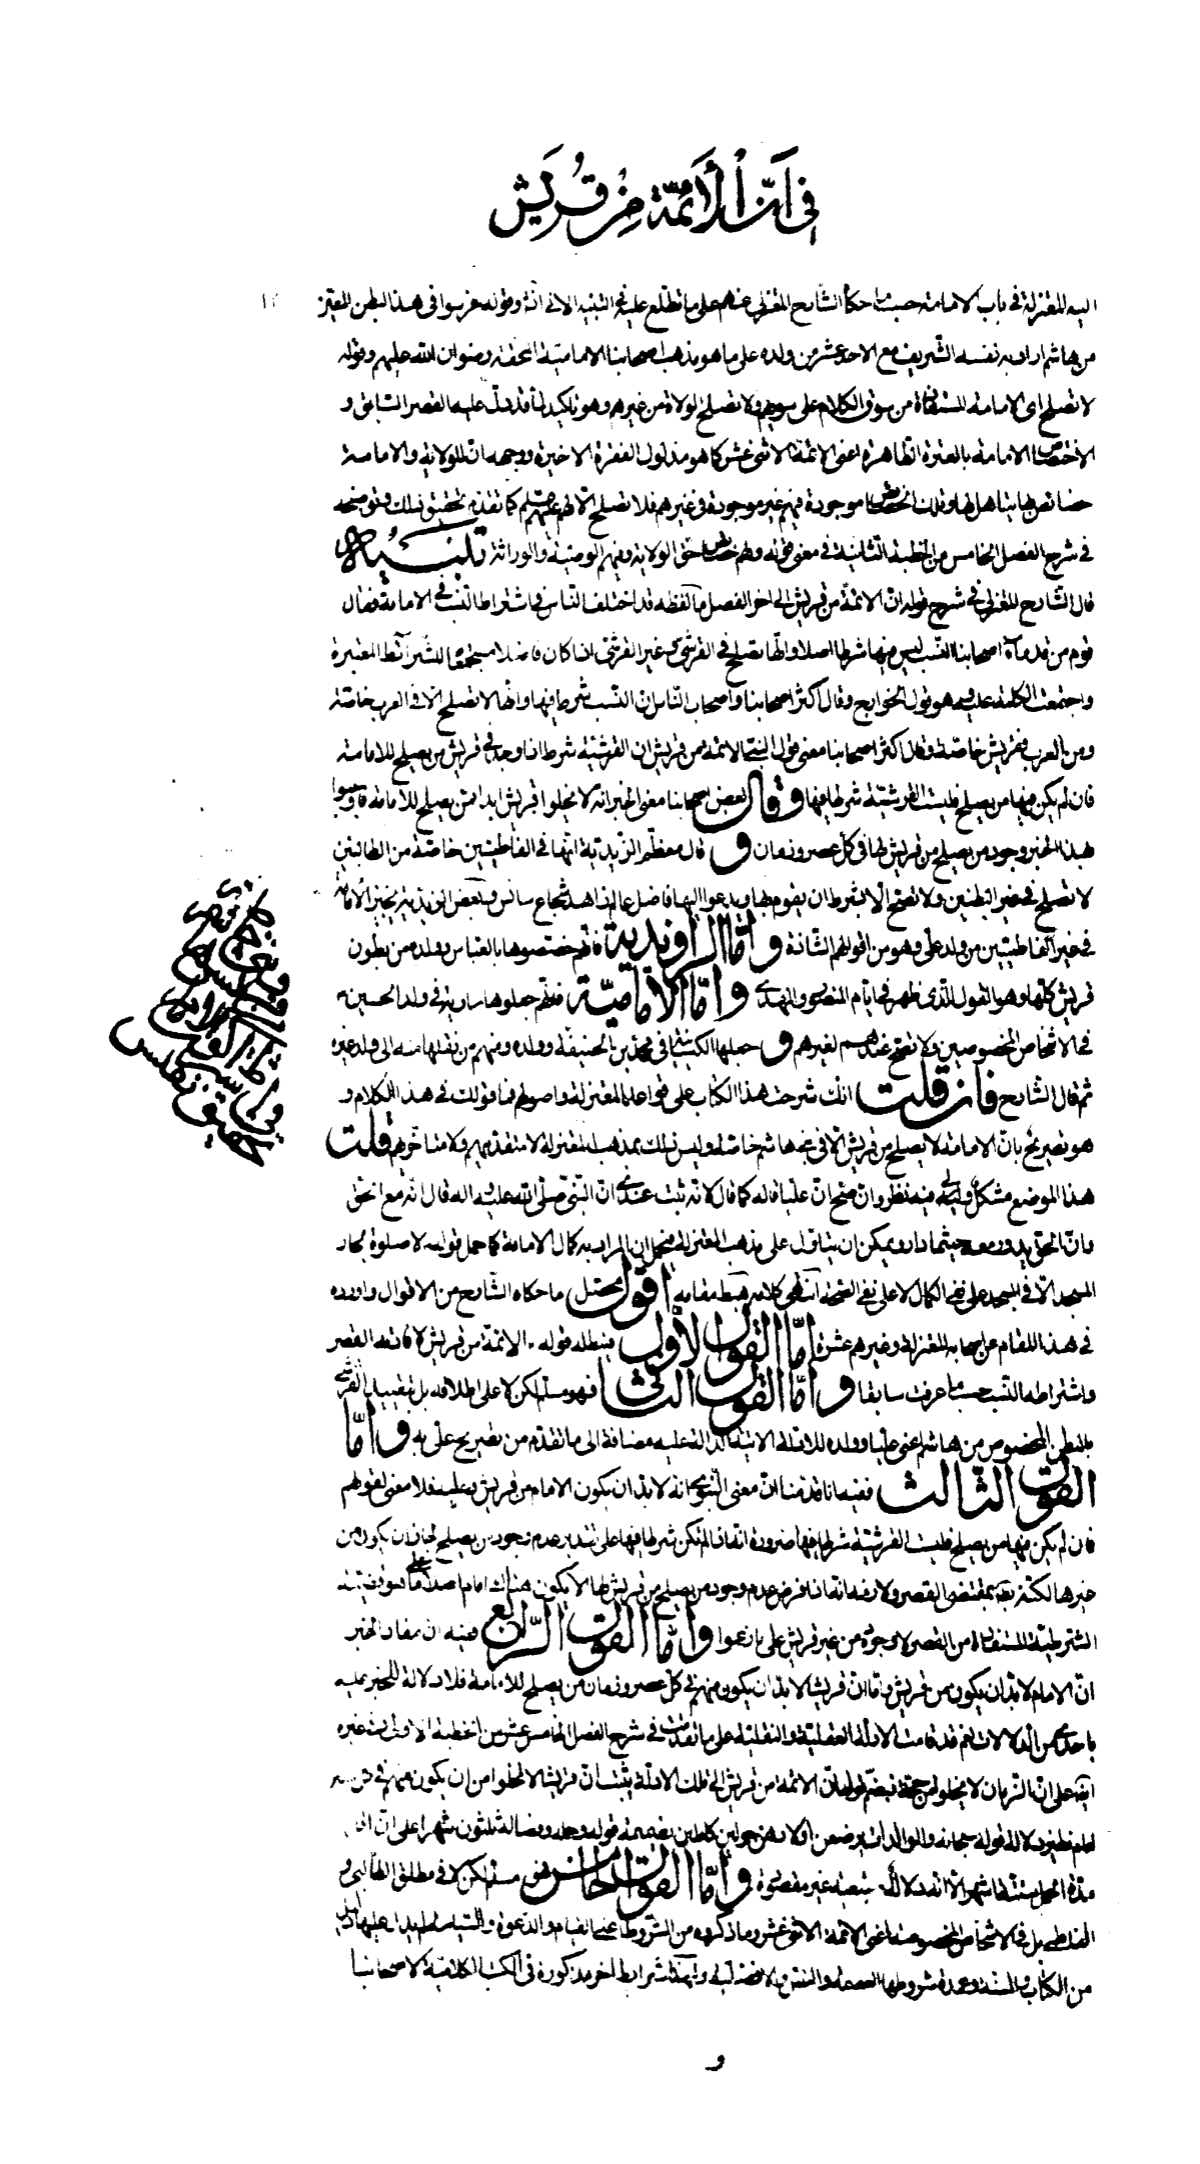 في أنّ الأئمّة من قريش
اليه المعتزلة في باب الامامة حسبما حكاه الشارح المعتزلي عنهم على ما تطلع عليه في التنبيه الاتي انه وقوله غرسوا في هذا البطن
من هاشم اراد به نفسه الشريف مع الاحد عشر من ولده على ما هو مذهب اصحابنا الامامية المحقة رضوان الله عليهم وقوله
لا تصلح اي الامامة المستفادة من سوق الكلام على سواهم ولا تصلح الولاة من غيرهم وهو تاكيد لما قد دل عليه القصر السابق و
الاختصاص الامامة بالعترة الطاهرة اعنى الائمة الاثنى عشر كما هو مدلول الفقرة الاخيرة ووجهه ان للولاية والامامة
خصائص هاتيك اهلها وتلك الخصائص موجودة فيهم غير موجودة في غيرهم فلا تصلح الا لهم كما تقدم تحقيق ذلك وتوضيحه
في شرح الفصل الخامس من الخطبة الثانية في معنى قوله ولهم خصائص حق الولاية وفيهم الوصية والوراثة تنبيه
قال الشارح المعتزلي في شرح قوله ان الائمة من قريش الى اخر الفصل ما لفظه قد اختلف الناس في اشتراط النسب في الامامة فقال
قوم من قدماء اصحابنا النسب ليس فيها شرطا اصلا وانها تصلح في القرشي وغير القرشي اذا كان فاضلا مستجمعا للشرائط المعتبرة
واجتمعت الكلمة عليه وهو قول الخوارج وقال اكثر اصحابنا واصحاب الناس ان النسب شرط فيها وانها لا تصلح الا في العرب خاصة
ومن العرب في قريش خاصة وقال اكثر اصحابنا معنى قول النبي الائمة من قريش ان القرشية شرط اذا وجد في قريش من يصلح للامامة
فان لم يكن فيها من يصلح فليست القرشية شرطا فيها وقال بعض اصحابنا معنى الخبر انه لا تخلوا قريش ابدا ممن يصلح للامامة فاوجبوا
بهذا الخبر وجود من يصلح من قريش لها في كل عصر وزمان و قال معظم الزيدية انها في الفاطميين خاصة من الطالبيين
لا تصلح في غير البطنين ولا تصح الا بشرط ان يقوم بها ويدعوا اليها فاضل عالم زاهد شجاع سائس وبعض الزيدية يجيز الامامة
في غير الفاطميين من ولد علي وهو من اقوالهم الشاذة وأمّا الراوندية فانهم خصصوها بالعباس وولده من بطون
قريش كلها وهو القول الذي ظهر في ايام المنصور والمهدي وأمّا الإماميّة فانهم جعلوها سارية في ولد الحسين
في الاشخاص المخصوصين ولا تصح عندهم لغيرهم و جعلها الكيسانية في محمد بن الحنيفة وولده ومنهم من نقلها منه الى ولد غيره
ثم قال الشارح فان قلت انك شرحت هذا الكتاب على قواعد المعتزلة واصولهم فما قولك في هذا الكلام و
هو تصريح بان الامامة لا تصلح من قريش الا في بني هاشم خاصة وليس ذلك بمذهب للمعتزلة لا متقدميهم ولا متاخريهم قلت
هذا الموضع مشكل ولي فيه نظر وان صح ان عليا قاله كما قال لانه ثبت عندي ان النبي صلى الله عليه واله قال انه مع الحق
وان الحق يدور معه حيثما دار ويمكن ان يتاول على مذهب المعتزلة فيحمل ان المراد به كمال الامامة كما حمل قوله لا صلوة لجار
المسجد الا في المسجد على نفي الكمال لا على نفي الصحة انتهى كلامه هبط مقامه اقول محصل ما حكاه الشارح من الاقوال واورده
في هذا المقام من اصحابه المعتزلة وغيرهم عشرة امّا القول الأول فيبطله قوله الائمة من قريش لافادته القصر
واشتراطه النسب حسبما عرفت سابقا وأمّا القول الثاني فهو مسلم لكن لا على اطلاقه بل بتقييد القرشي
بالبطن المخصوص من هاشم اعنى عليا وولده للادلة الاتية الدالة عليه مضافة الى ما تقدم من تصريح علي به وأمّا
القول الثالث ففيه انا قدمنا ان معنى النبوي انه لا بد ان يكون الامام من قريش وعليه فلا معنى لقولهم
فان لم يكن فيها من يصلح فليست القرشية شرطا فيها ضرورة انها اذا لم تكن شرطا فيها على تقدير عدم وجود من يصلح لجاز ان يكون من
غيرها لكنه بمقتضى القصر ولازمه انه اذا فرض عدم وجود من يصلح من قريش لها لا يكون هناك امام اصلا
الشرطية المستفادة من القصر لا وجوده من غير قريش على ما زعموا وأمّا القول الرّابع ففيه ان مفاد الخبر
ان الامام لا بد ان يكون من قريش واما ان قريشا لا بد ان يكون منهم في كل عصر وزمان من يصلح للامامة فلا دلالة للخبر عليه
باحدى من الدلالات نعم قد قامت الادلة العقلية والنقلية على ما تقدمت في شرح الفصل الخامس عشر من الخطبة الاولى وغيره
على ان الزمان لا يخلو من حجة فبضم قوله ان الائمة من قريش الى تلك الادلة يثبت ان قريشا لا تخلوا من ان يكون منهم
امام نظير دلالة قوله سبحانه والوالدات يرضعن اولادهن حولين كاملين بضميمة قوله وحمله وفصاله ثلثون شهرا على ان اقل
مدة الحمل ستة اشهر الا انه دلالة تبعية غير مقصودة وأمّا القول الخامس فهو مسلم لكن لا في مطلق الطالبي و
الفاطمي بل في الاشخاص المخصوصة اعنى الائمة الاثنى عشر وما ذكروه من الشروط اعنى القيام والدعوة والسياسة لم يدل عليها دليل
من الكتاب والسنة وعمدة شروطها العصمة والنص والافضلية ولها شرايط اخر مذكورة في الكتب الكلامية لاصحابنا
و